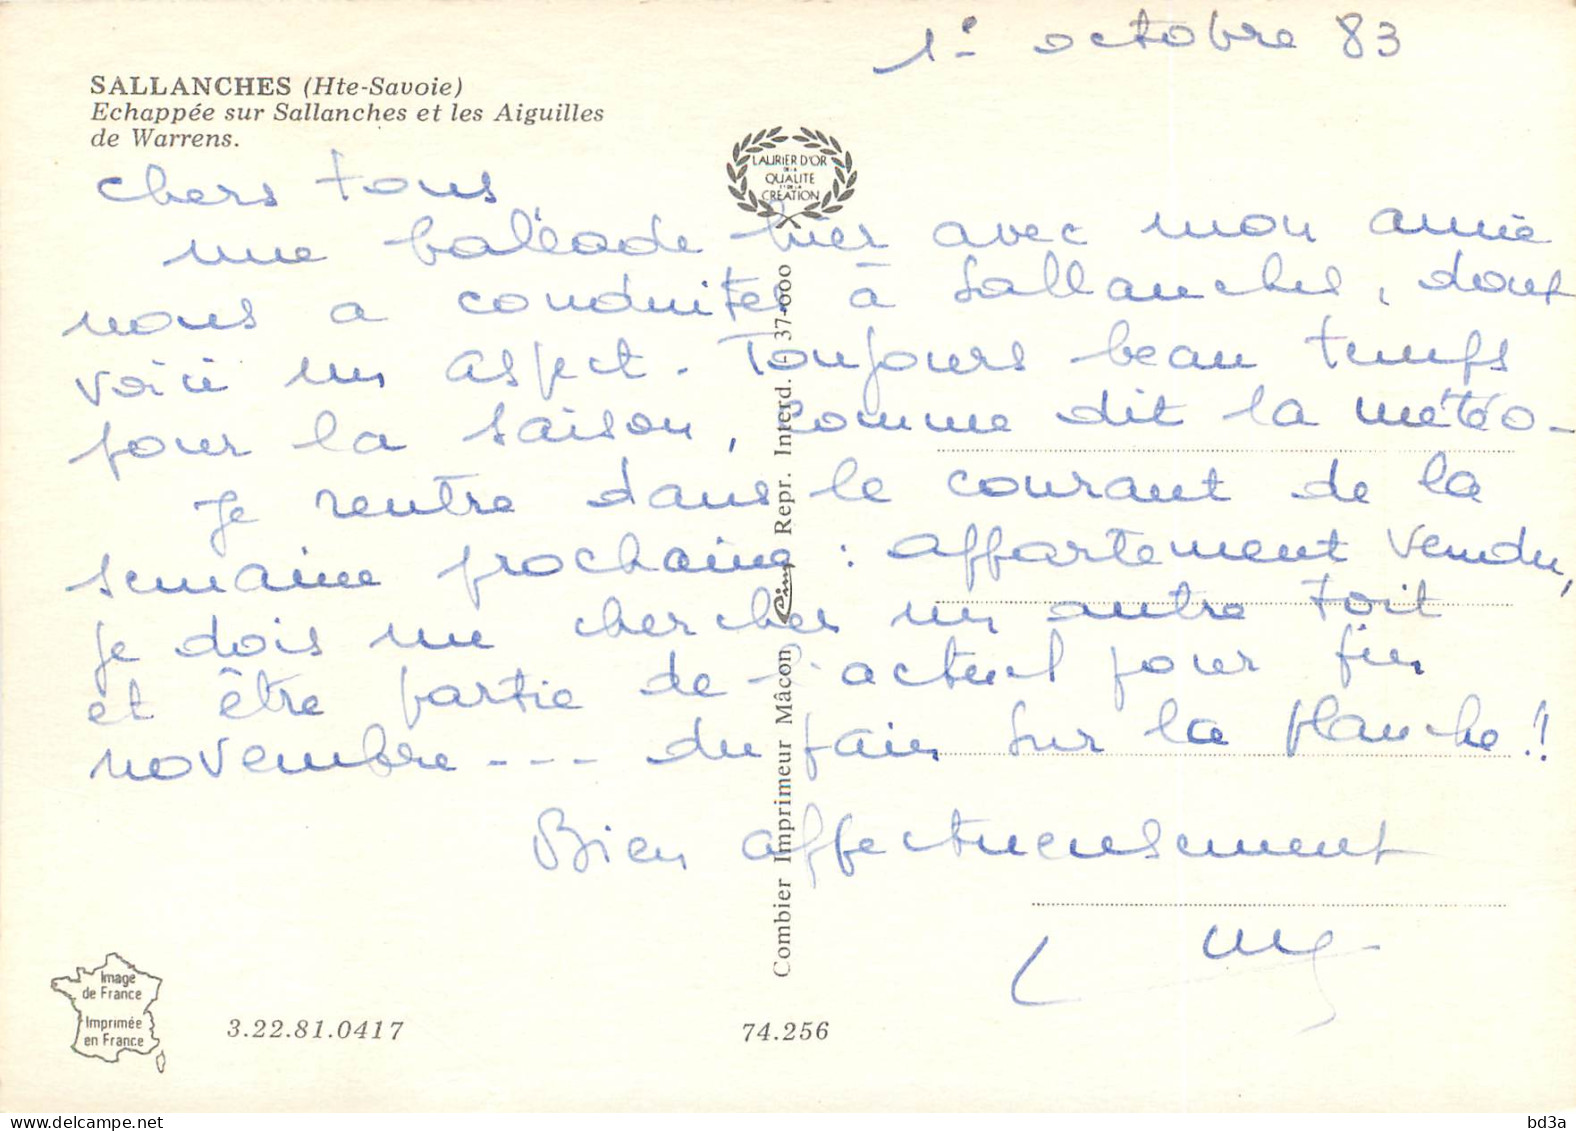 1e octobre 83
SALLANCHES (Hte-Savoie)
Echappée sur Sallanches et les Aiguilles
de Warrens.
LAURIER D'OR
DE LA
QUALITE
ET DE LA
CREATION
chers tous
une baleade hier avec mon amie
nous a conduites à Sallanches, dont
voici un aspect. Toujours beau temps
pour la saison, comme dit la météo-
Je rentre dans le courant de la
semaine prochaine : appartement vendu,
je dois me chercher un autre toit
et être partie de l'actuel pour fin
novembre --- du pain sur la planche!!
Bien affectueusement
Combier Imprimeur Mâcon Cim Repr. Interd. - 37-000
Image
de France
Imprimée
en France
3.22.81.0417
74.256
www.delcampe.net
bd3a